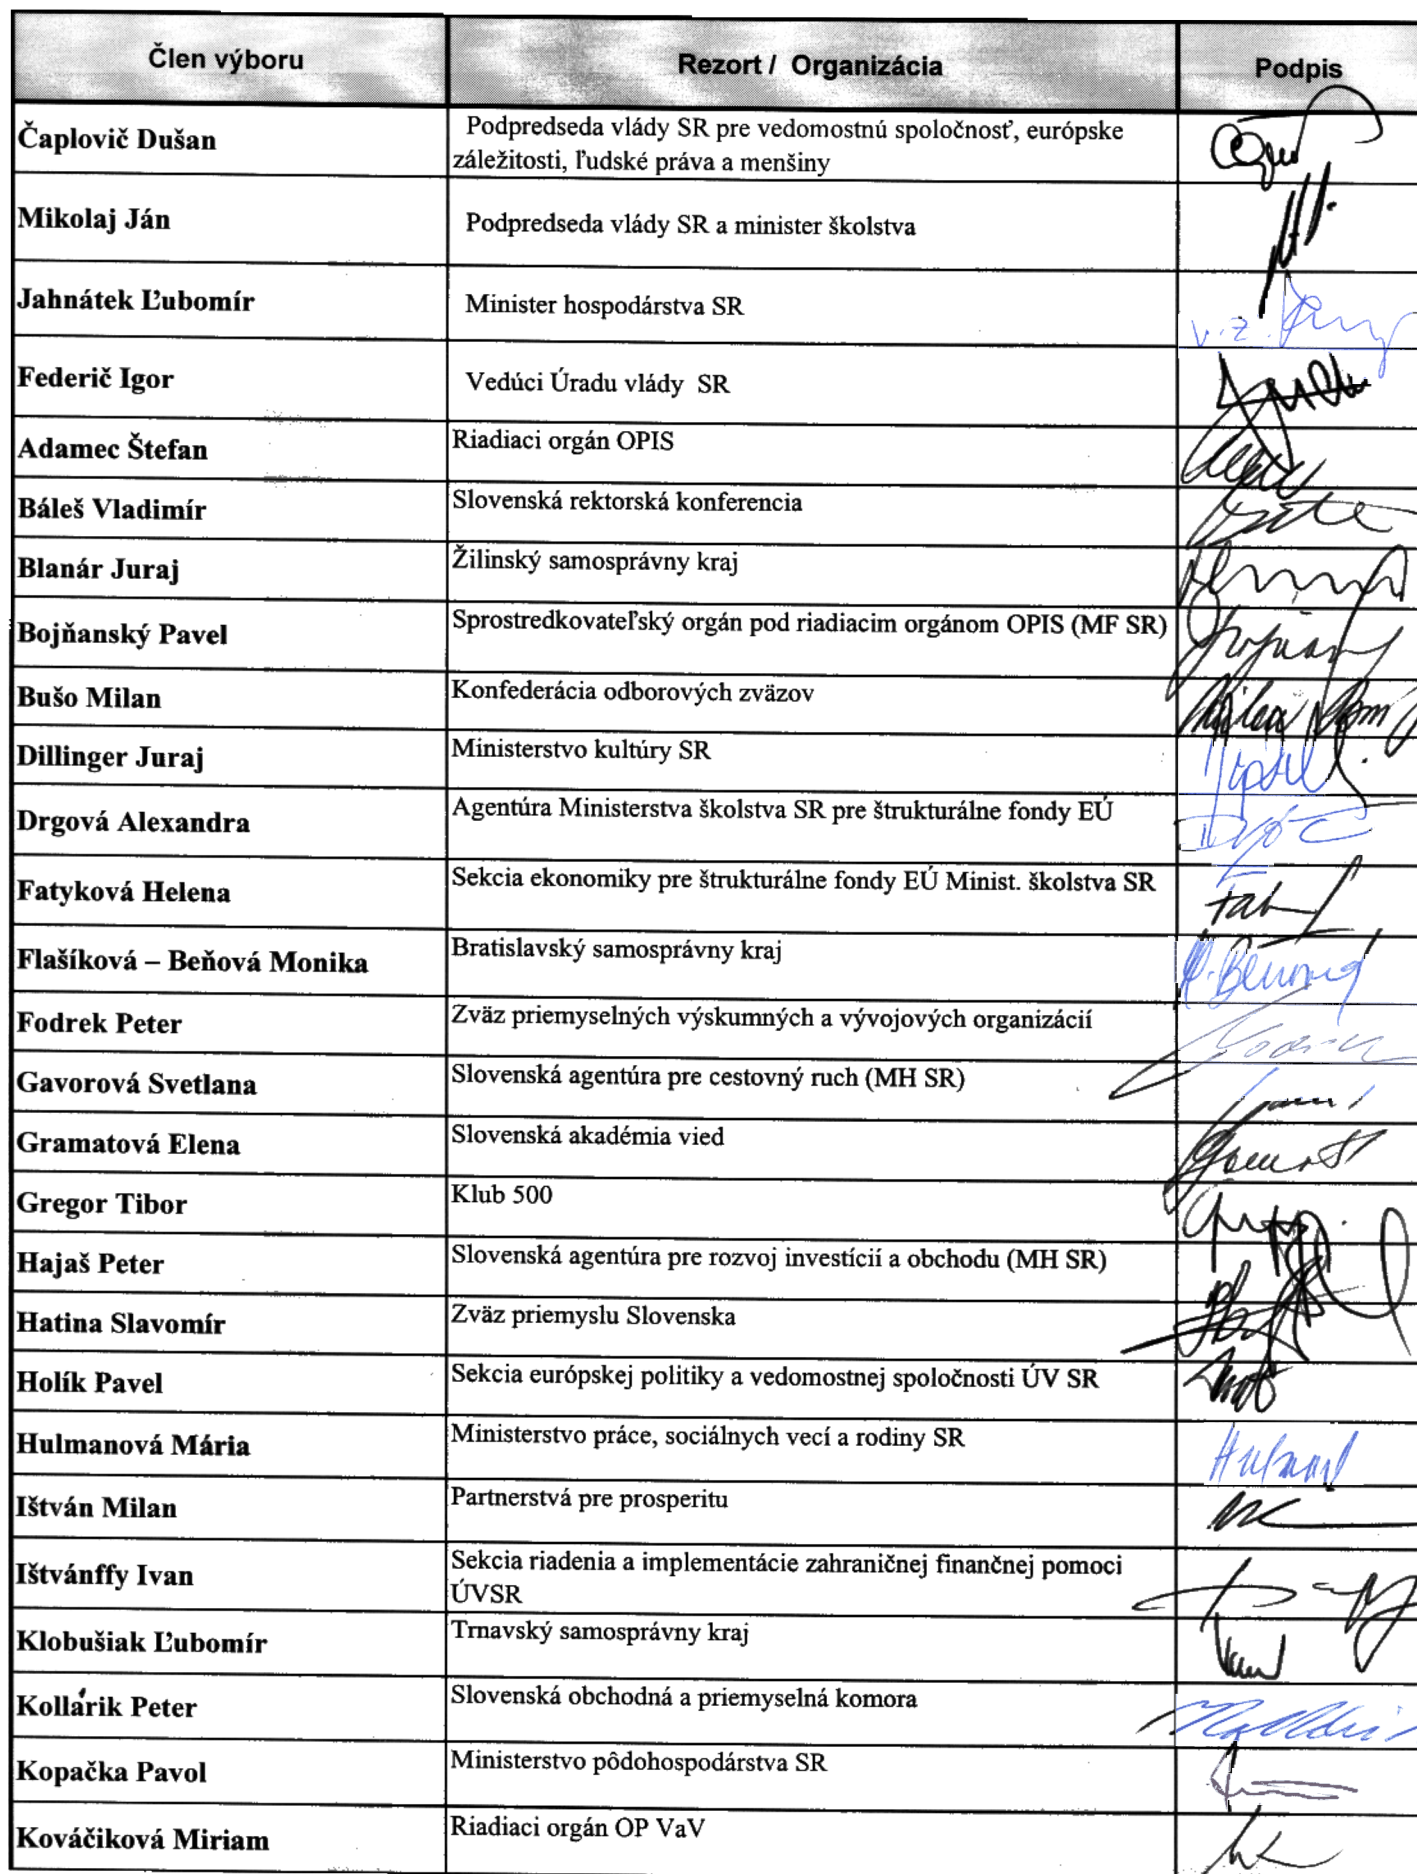 Člen výboru Rezort / Organizácia Podpis
Čaplovič Dušan Podpredseda vlády SR pre vedomostnú spoločnosť, európske
záležitosti, ľudské práva a menšiny
Mikolaj Ján Podpredseda vlády SR a minister školstva
Jahnátek Ľubomír Minister hospodárstva SR v.z.
Federič Igor Vedúci Úradu vlády SR
Adamec Štefan Riadiaci orgán OPIS
Báleš Vladimír Slovenská rektorská konferencia
Blanár Juraj Žilinský samosprávny kraj
Bojňanský Pavel Sprostredkovateľský orgán pod riadiacim orgánom OPIS (MF SR)
Bušo Milan Konfederácia odborových zväzov
Dillinger Juraj Ministerstvo kultúry SR
Drgová Alexandra Agentúra Ministerstva školstva SR pre štrukturálne fondy EÚ
Fatyková Helena Sekcia ekonomiky pre štrukturálne fondy EÚ Minist. školstva SR
Flašíková – Beňová Monika Bratislavský samosprávny kraj
Fodrek Peter Zväz priemyselných výskumných a vývojových organizácií
Gavorová Svetlana Slovenská agentúra pre cestovný ruch (MH SR)
Gramatová Elena Slovenská akadémia vied
Gregor Tibor Klub 500
Hajaš Peter Slovenská agentúra pre rozvoj investícií a obchodu (MH SR)
Hatina Slavomír Zväz priemyslu Slovenska
Holík Pavel Sekcia európskej politiky a vedomostnej spoločnosti ÚV SR
Hulmanová Mária Ministerstvo práce, sociálnych vecí a rodiny SR
Ištván Milan Partnerstvá pre prosperitu
Ištvánffy Ivan Sekcia riadenia a implementácie zahraničnej finančnej pomoci
ÚVSR
Klobušiak Ľubomír Trnavský samosprávny kraj
Kollárik Peter Slovenská obchodná a priemyselná komora
Kopačka Pavol Ministerstvo pôdohospodárstva SR
Kováčiková Miriam Riadiaci orgán OP VaV